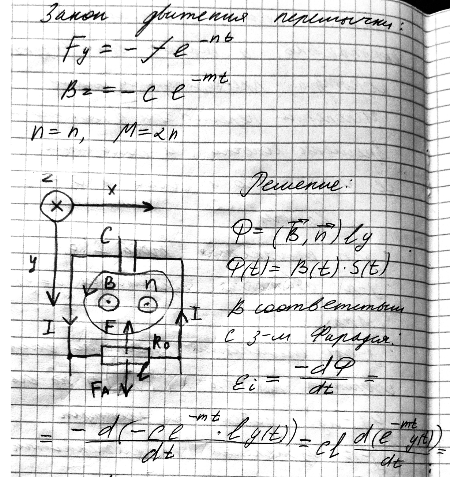 Закон движения перемычки:
Fy = - f e^-nt
Bz = - c e^-mt
n = n, M = 2n
z
x
C
y
B n
I I
F
R0
FA l
Решение:
Ф = (B⃗, n⃗) l y
Ф(t) = B(t) · S(t)
В соответствии
с з-м Фарадея:
εi = -dФ/dt =
= -d(-c e^-mt · l y(t))/dt = cl d(e^-mt y(t))/dt =